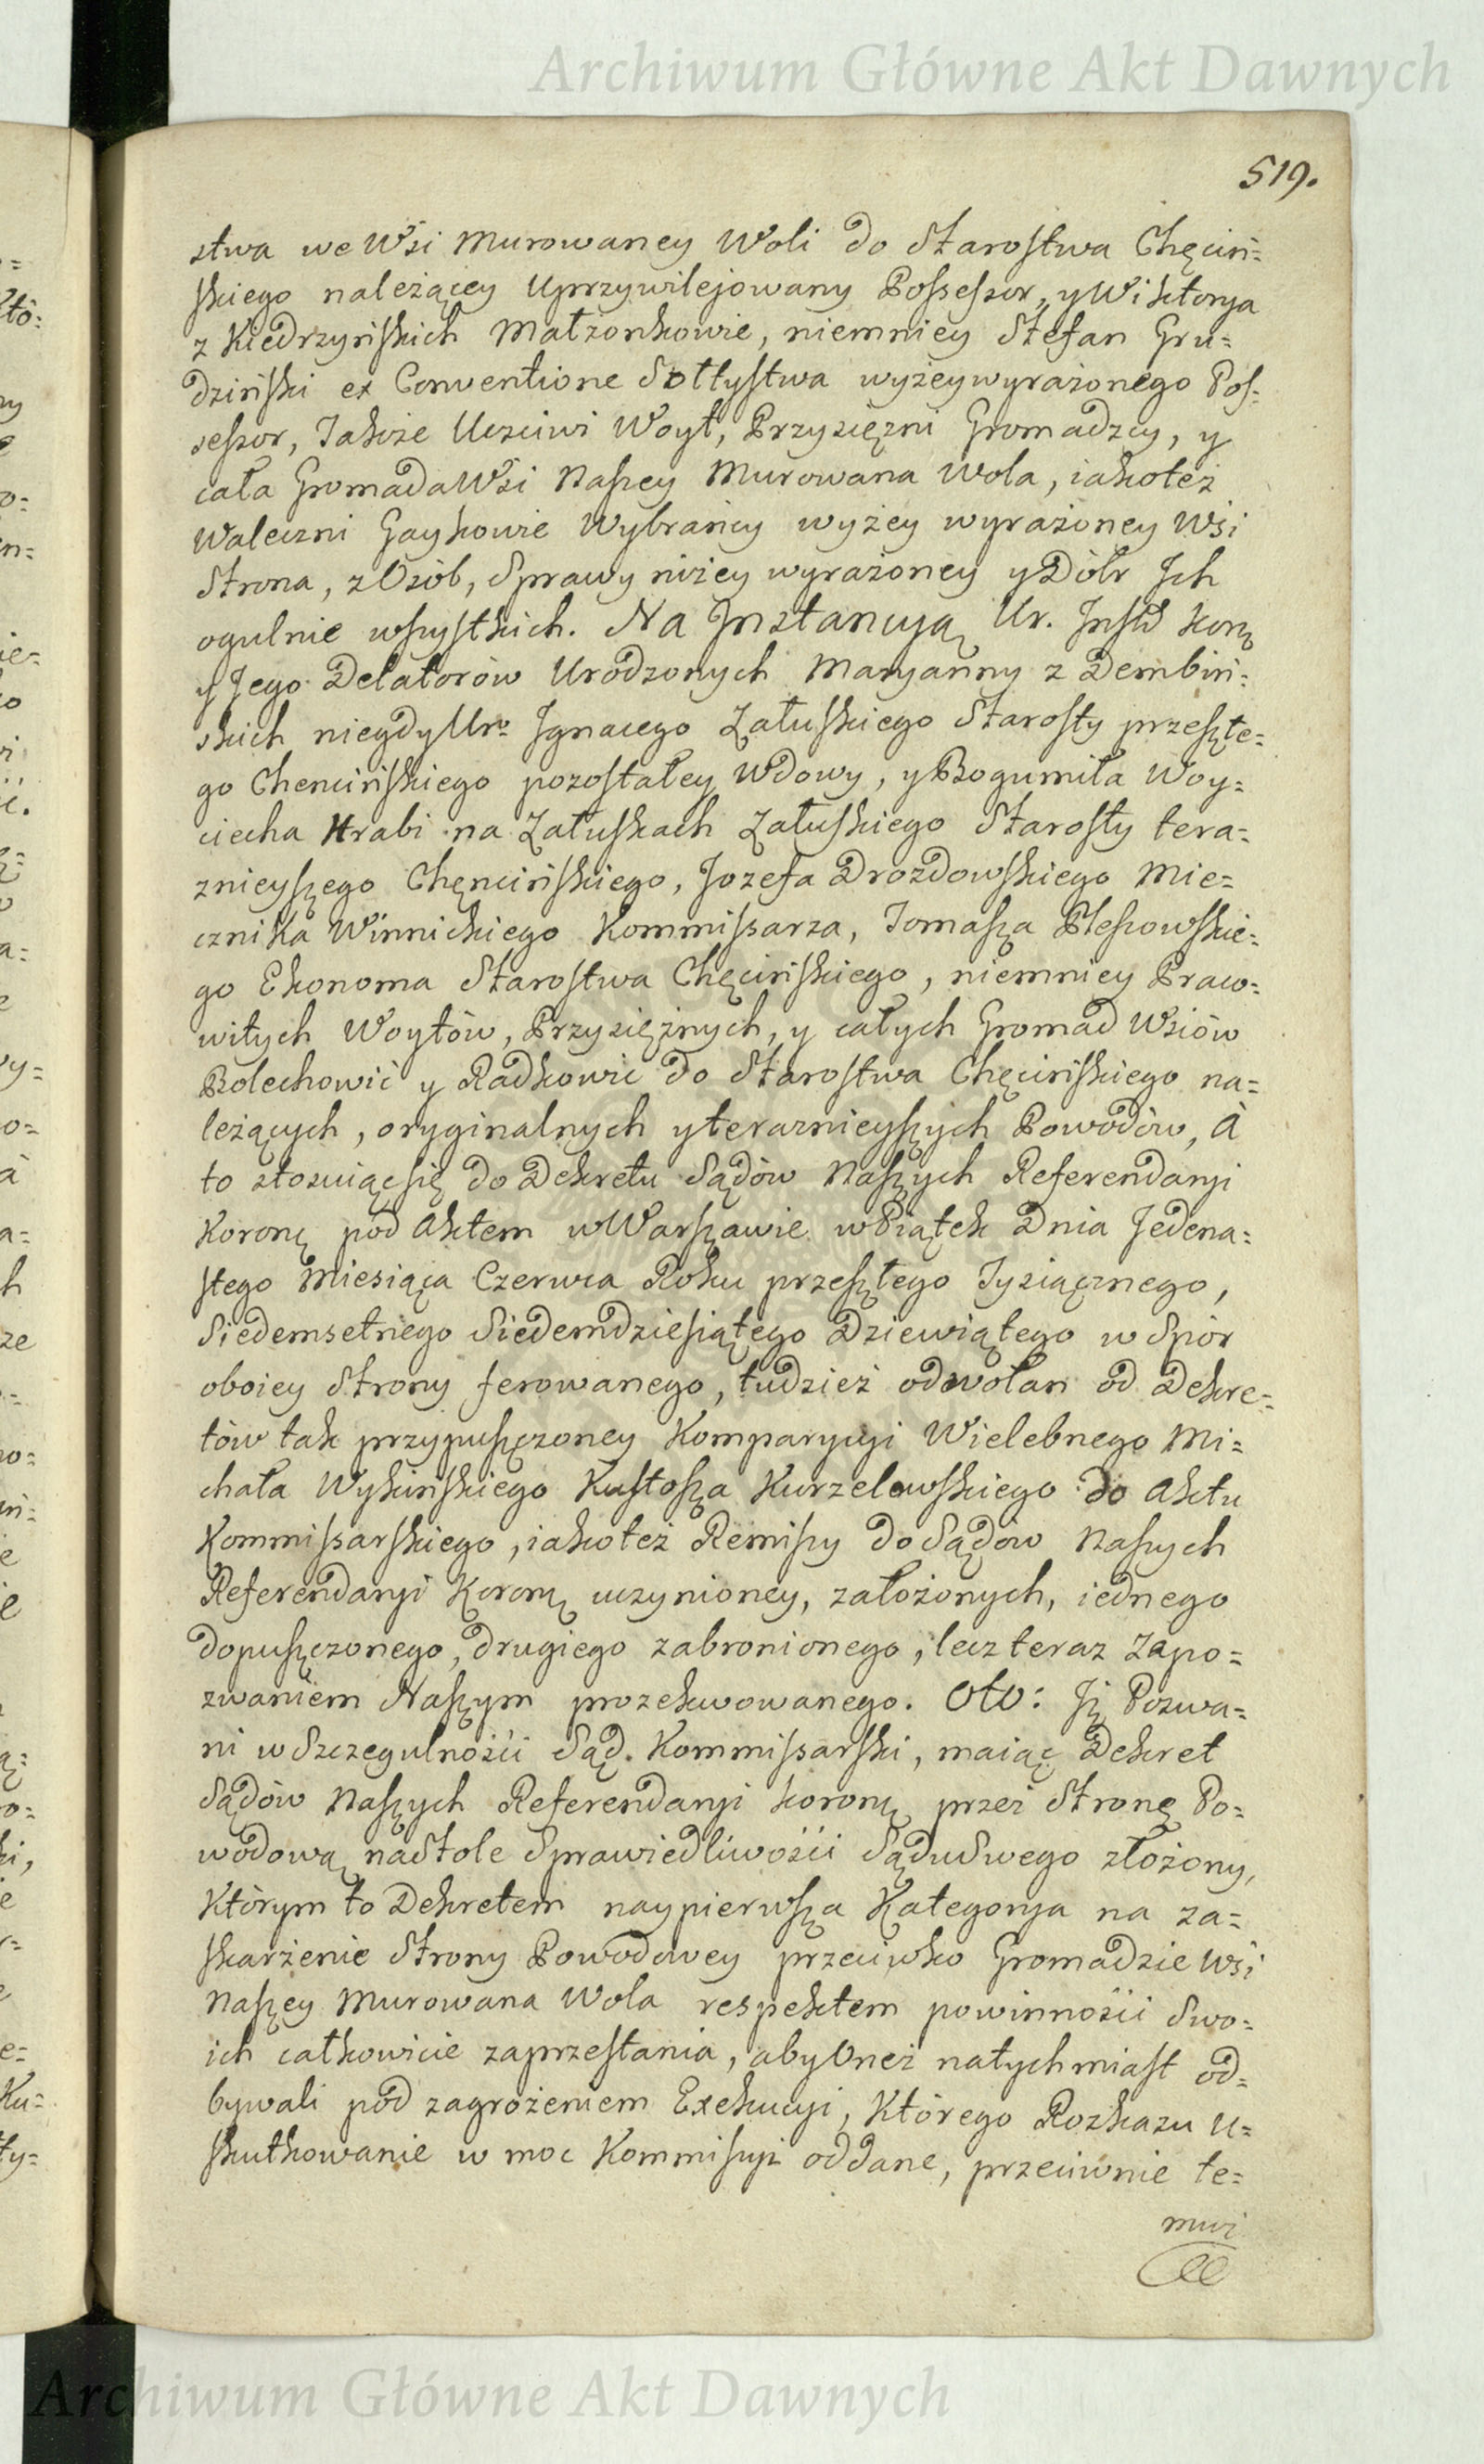 Archiwum Główne Akt Dawnych
519.
stwa we Wsi Murowaney Woli do Starostwa Chęciń=
skiego należącey Uprzywilejowany Possessor, y Wiktorya
z Kiedrzyńskich Małżonkowie, niemniey Stefan Gru=
dziński ex Conventione Sołtystwa wyżey wyrażonego Pos=
sessor, Jakoże Uczciwi Woyt, Przysięzni Gromadzcy, y
cała Gromada Wsi Naszey Murowana Wola, iakoteż
Waleczni Gaykowie Wybrańcy wyżey wyrażoney Wsi
Strona, z Osób, Sprawy niżey wyrażoney y Dóbr Jch
ogulnie wszystkich. Na Jnstancyją Ur. Jnsty Koro
y Jego Delatorów Urodzonych Maryanny z Dembiń=
skich niegdy Urº Jgnacego Załuskiego Starosty przeszłe=
go Chencińskiego pozostałey Wdowy, y Bogumiła Woy=
ciecha Hrabi na Załuskach Załuskiego Starosty tera=
znieyszego Chęncińskiego, Jozefa Drozdowskiego Mie=
cznika Winnickiego Kommissarza, Tomasza Pleszowskie=
go Ekonoma Starostwa Chęcińskiego, niemniey Praw=
witych Woytów, Przysiężnych, y całych Gromad Wsiów
Bolechowic y Radkowic do Starostwa Chęcińskiego na=
leżących, oryginalnych y teraznieyszych Powodów, À
to stosuiąc się do Dekretu Sądów Naszych Referendaryi
Koronę pod Aktem w Warszawie w Piątek Dnia Jedena=
stego Miesiąca Czerwca Roku przeszłego Tysiącznego,
Siedemsetnego Siedemdziesiątego Dziewiątego w Spór
oboiey Strony ferowanego, tudzież odwołań od Dekre=
tów tak przypuszczoney Komparycyi Wielebnego Mi=
chała Wykińskiego Kustosza Kurzelowskiego do Aktu
Kommissarskiego, iakoteż Remissy do Sądów Naszych
Referendaryi Koronę uczynioney, założonych, iednego
dopuszczonego, drugiego zabronionego, lecz teraz Zapo=
zwaniem Naszym prozekwowanego. Oto: Jż Pozwa=
ni w Szczegulności Sąd Kommissarski, maiąc Dekret
Sądów Naszych Referendaryi Koronę przez Stronę Po=
wodową na Stole Sprawiedliwości Sądu Swego złożony,
Którym to Dekretem naypierwsza Kategorya na za=
skarżenie Strony Powodowey przeciwko Gromadzie Wsi
Naszey Murowana Wola respektem powinności Swo=
ich całkowicie zaprzestania, aby Oneż natychmiast od=
bywali pod zagrożeniem Exekucyi, Którego Rozkazu u=
skutkowanie w moc Kommissyi oddane, przeciwnie te=
mui
Archiwum Główne Akt Dawnych